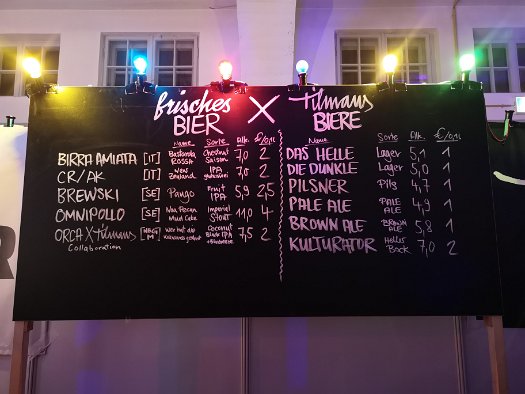 frisches BIER X Tilmans BIERE
Name Sorte Alk. €/0,1L
BIRRA AMIATA [IT] Bastarda ROSSA Chestnut Saison 7,0 2
CR/AK [IT] New Zealand IPA 7,0 2
BREWSKI [SE] Pango Fruit IPA 5,9 2,5
OMNIPOLLO [SE] Noa Pecan Mud Cake Imperial Stout 11,0 4
ORCA X Tilmans Collaboration wer hat die Coconut Black IPA 7,5 2
Name Sorte Alk. €/0,1L
DAS HELLE Lager 5,1 1
DIE DUNKLE Lager 5,0 1
PILSNER Pils 4,7 1
PALE ALE PALE ALE 4,9 1
BROWN ALE BROWN ALE 5,8 1
KULTURATOR Heller Bock 7,0 2
R